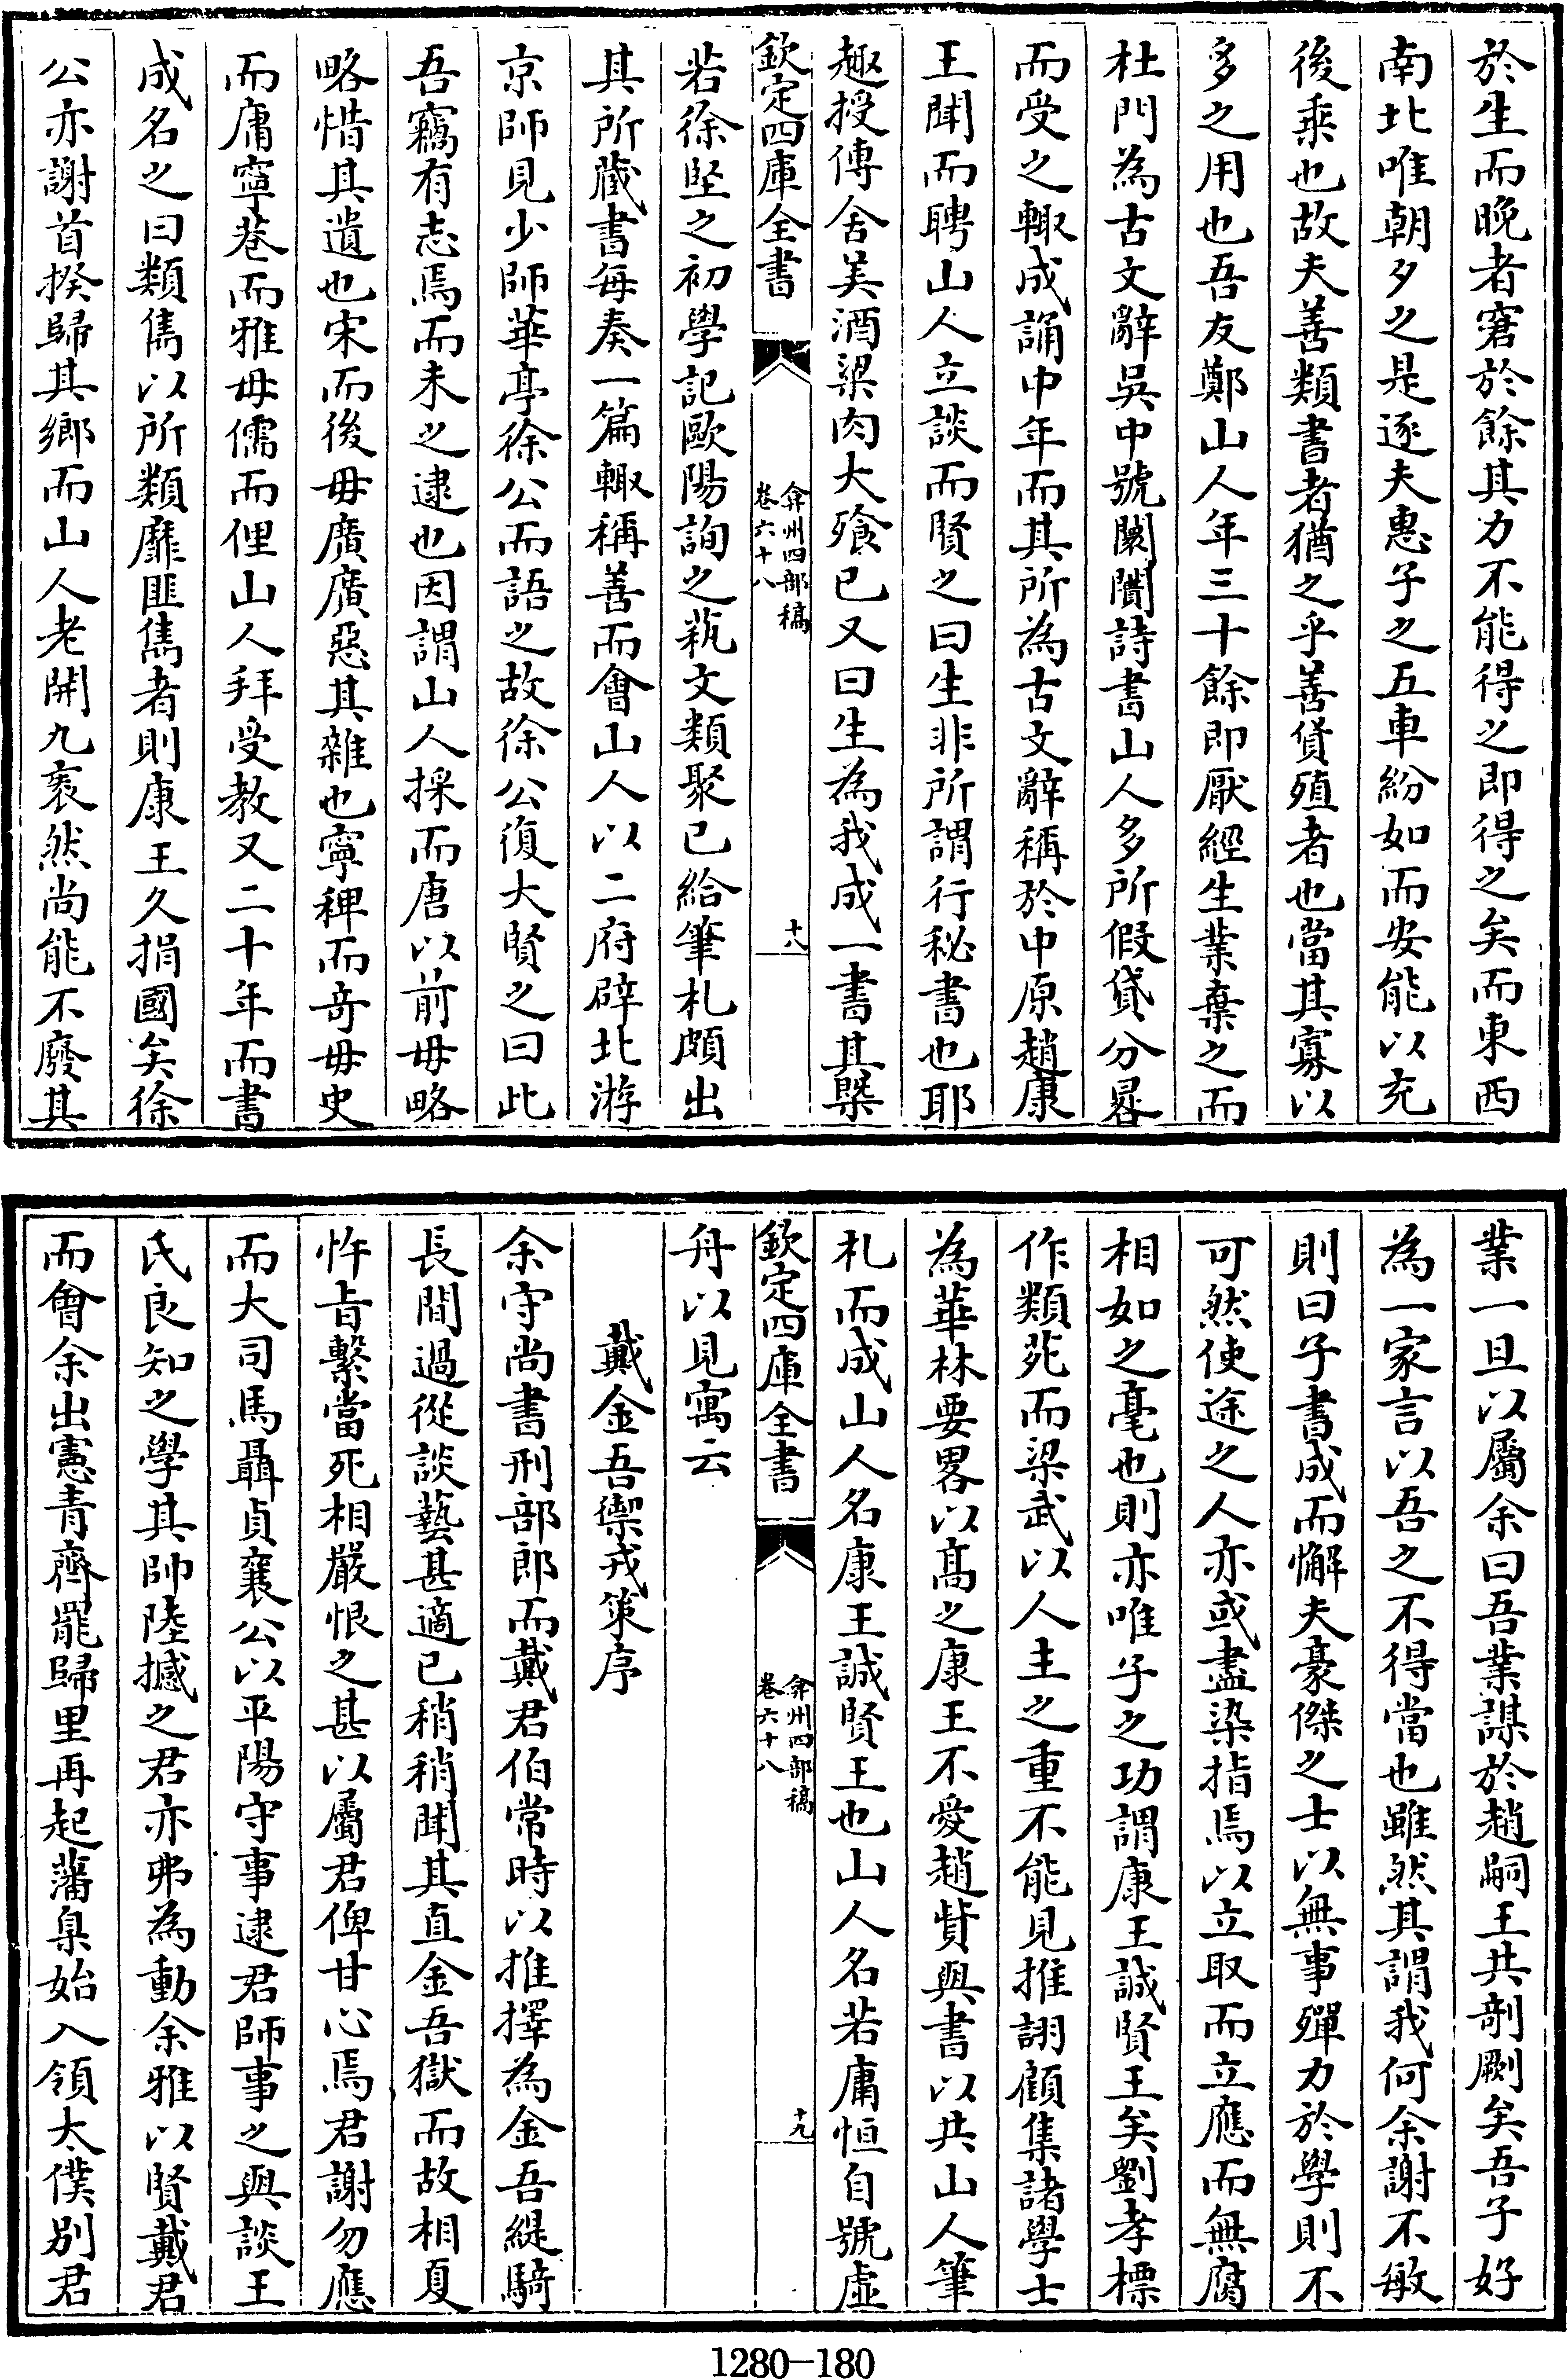 於生而晚者窘於餘其力不能得之即得之矣而東西
南北唯朝夕之是逐夫惠子之五車紛如而安能以充
後乘也故夫善類書者猶之乎善貨殖者也當其寡以
多之用也吾友鄭山人年三十餘即厭經生業棄之而
杜門為古文辭吳中號闤闠詩書山人多所假貸分晷
而受之輙成誦中年而其所為古文辭稱於中原趙康
王聞而聘山人立談而賢之曰生非所謂行秘書也耶
趣授傳舍美酒粱肉大飱已又曰生為我成一書其槩
欽定四庫全書
弇州四部稿
卷六十八
十八
若徐堅之初學記歐陽詢之蓺文類聚已給筆札頗出
其所藏書每奏一篇輙稱善而會山人以二府辟北游
京師見少師華亭徐公而語之故徐公復大賢之曰此
吾竊有志焉而未之逮也因謂山人採而唐以前毋略
略惜其遺也宋而後毋廣廣惡其雜也寧稗而奇毋史
而庸寧巷而雅毋儒而俚山人拜受教又二十年而書
成名之曰類雋以所類靡匪雋者則康王久捐國矣徐
公亦謝首揆歸其鄉而山人老開九袠然尚能不廢其
業一旦以屬余曰吾業謀於趙嗣王共剞劂矣吾子好
為一家言以吾之不得當也雖然其謂我何余謝不敏
則曰子書成而懈夫豪傑之士以無事殫力於學則不
可然使途之人亦或盡染指焉以立取而立應而無腐
相如之毫也則亦唯子之功謂康王誠賢王矣劉孝標
作類苑而梁武以人主之重不能見推詡顧集諸學士
為華林要畧以高之康王不愛趙貲與書以共山人筆
札而成山人名康王誠賢王也山人名若庸恒自號虛
欽定四庫全書
弇州四部稿
卷六十八
十九
舟以見寓云
戴金吾禦戎策序
余守尚書刑部郎而戴君伯常時以推擇為金吾緹騎
長間過從談藝甚適已稍稍聞其直金吾獄而故相夏
忤旨繫當死相嚴恨之甚以屬君俾甘心焉君謝勿應
而大司馬聶貞襄公以平陽守事逮君師事之與談王
氏良知之學其帥陸撼之君亦弗為動余雅以賢戴君
而會余出憲青齊罷歸里再起藩臬始入領太僕別君
1280—180